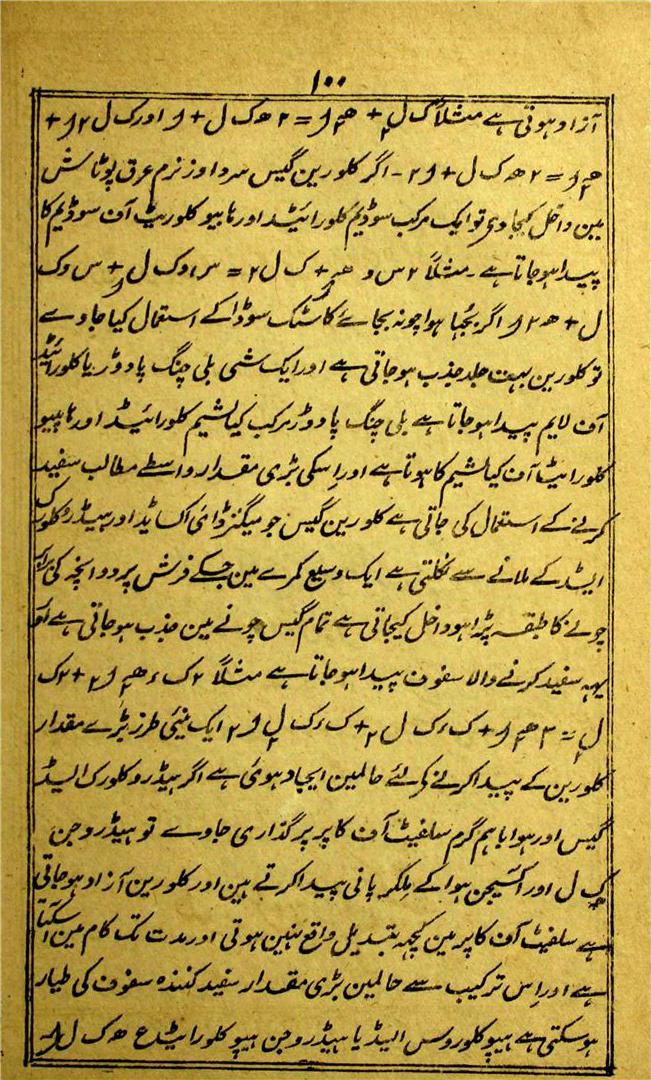 ۱۰۰
آزاد ہوتی ہے مثلاً ک ل۲ + ھ۲ و = ۲ ھ ک ل + و اور ک ل ۲ و +
ھ۲ و = ۲ ھ ک ل + و ۲ - اگر کلورین گیس سرد اور نرم عرق پوٹاش
مین داخل کیجاوے تو ایک مرکب سوڈیم کلورائیڈ اور ہایپو کلوریٹ آن سوڈیم کا
پیدا ہو جاتا ہے - مثلاً ۲ س و ھ + ک ل ۲ = س و ک ل + س و ک
ل + ھ ۲ و اگر بُجہا ہوا چونہ بجاے کاسٹک سوڈا کے استعمال کیا جاوے
تو کلورین بہت جلد جذب ہو جاتی ہے اور ایک شی بلی چنگ پاوڈر یا کلورائیڈ
آن لایم پیدا ہو جاتا ہے بلی چنگ پاوڈر مرکب کیالشیم کلورائیڈ اور ہایپو
کلورایٹ آن کیالشیم کا ہوتا ہے اور اسکی بڑی مقدار واسطے مطالب سفید
کرنے کے استعمال کی جاتی ہے کلورین گیس جو میگنیز ڈائی اکسایڈ اور ہیڈرو کلورک
ایسڈ کے ملانے سے نکلتی ہے ایک وسیع کمرے مین جسکے فرش پر دو انچہ کی
چونے کا طبقہ پڑا ہو داخل کیجاتی ہے تمام گیس چونے مین جذب ہو جاتی ہے اور
یہہ سفید کرنے والا سفوف پیدا ہو جاتا ہے مثلاً ۲ ک ء ھ۲ و۲ + ۲ ک
ل۲ = ۲ ھ۲ و + ک ء ک ل ۲ + ک ء ک ل۲ و ۲ ایک نئی طرز بڑے مقدار
کلورین کے پیدا کرنے کے لئے حالمین ایجاد ہوئی ہے اگر ہیڈرو کلورک ایسڈ
گیس اور ہوا باہم گرم سلفیٹ آن کاپر پر گذاری جاوے تو ہیڈروجن
ک ل اور اکسیجن ہوا کے ملکر پانی پیدا کرتے ہین اور کلورین آزاد ہو جاتی
ہے سلفیٹ آن کاپر مین کچہہ تبدیلی واقع نہین ہوتی اور مدت تک کام مین آسکتا
ہے اور اس ترکیب سے حالمین بڑی مقدار سفید کنندہ سفوف کی طیار
ہو سکتی ہے ہیپو کلوروس ایسڈ یا ہیڈروجن ہیپو کلورایٹ ع ھ ک ل و